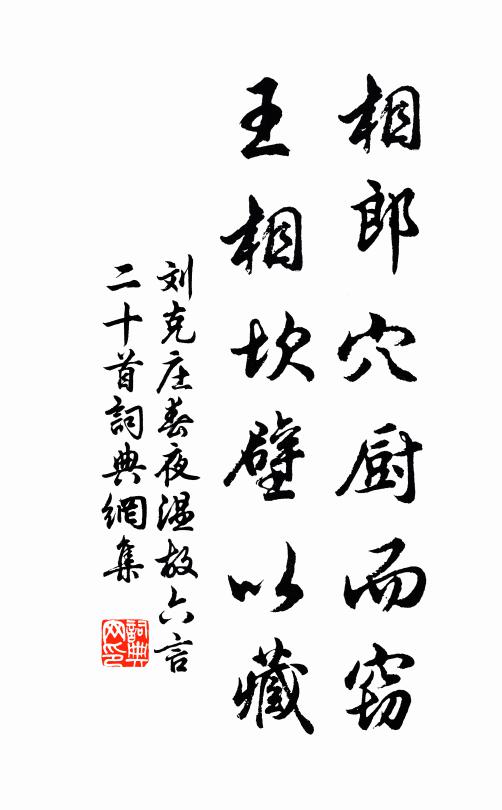 相郎穴厨而窃
王相坎壁以藏
刘克庄春夜温故六言
二十首詞典網集
詞典網印